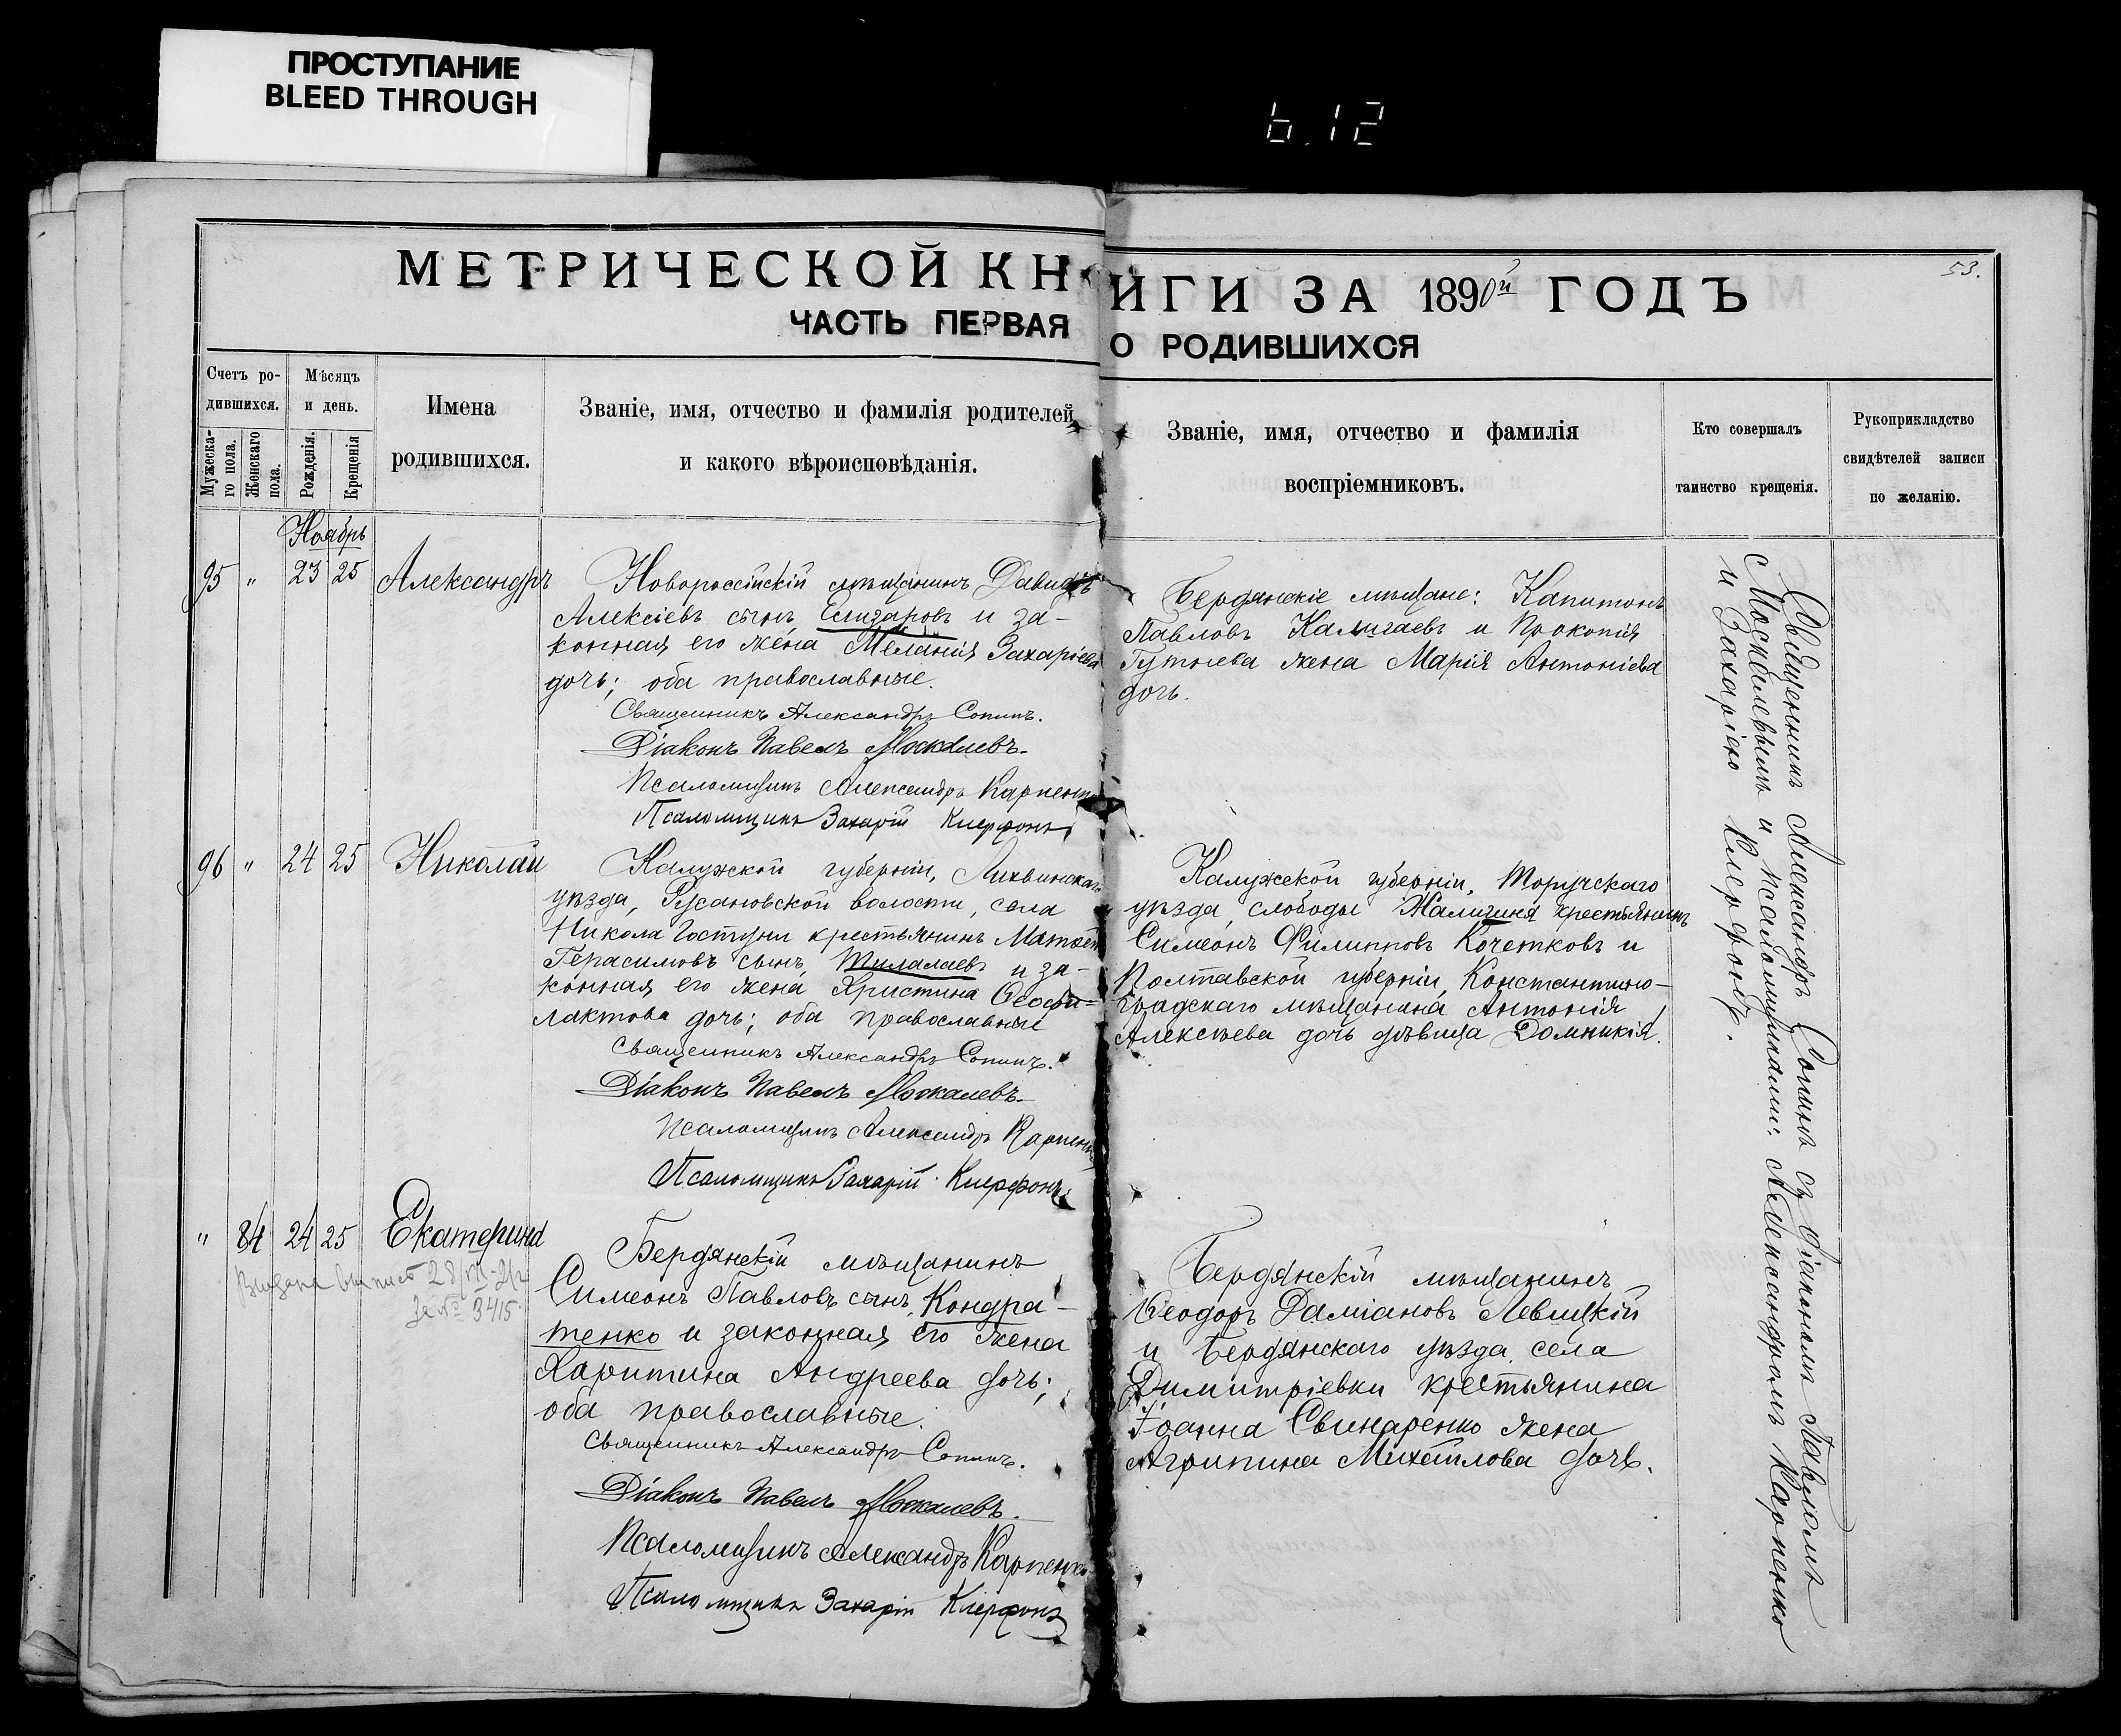 ПРОСТУПАНИЕ
BLEED THROUGH
6.12
МЕТРИЧЕСКОЙ КНИГИ ЗА 1890й ГОДЪ
53.
ЧАСТЬ ПЕРВАЯ О РОДИВШИХСЯ
Счетъ ро-
дившихся.
Мужеска-
го пола.
Женскаго
пола.
Мѣсяцъ
и день.
Рожденія.
Крещенія
Имена
родившихся.
Званіе, имя, отчество и фамилія родителей
и какого вѣроисповѣданія.
Званіе, имя, отчество и фамилія
воспріемниковъ.
Кто совершалъ
таинство крещенія.
Рукоприкладство
свидѣтелей записи
по желанію.
Ноябрь
95 " 23 25 Александръ
Новороссійскій мѣщанинъ Давидъ
Алексіевъ сынъ Елизаровъ и за-
конная его жена Меланія Захаріева
дочь; оба православные.
Священникъ Александръ Сопинъ.
Діаконъ Павелъ Москалевъ.
Псаломщикъ Александръ Карпенко
Псаломщикъ Захарій Клерфонъ
Бердянскіе мѣщане: Капитонъ
Павловъ и Прокопія
жена Марія Антоніева
дочь.
96 " 24 25 Николай
Калужской губерніи, Лихвинскаго
уѣзда, Русановской волости, села
Никола Гостуни крестьянинъ
Герасимовъ сынъ и за-
конная его жена Христина Ѳеофи-
лактова дочь; оба православные
Священникъ Александръ Сопинъ.
Діаконъ Павелъ Москалевъ.
Псаломщикъ Александръ Карпенко
Псаломщикъ Захарій Клерфонъ
Калужской губерніи,
уѣзда, слободы крестьянинъ
Симеонъ Филипповъ Кочетковъ и
Полтавской губерніи, Константино-
градскаго мѣщанина Антонія
Алексѣева дочь дѣвица Домникія.
" 84 24 25 Екатерина
28/VII-
за № 3415
Бердянскій мѣщанинъ
Симеонъ Павловъ сынъ Кондра-
тенко и законная его жена
Харитина Андреева дочь;
оба православные.
Священникъ Александръ Сопинъ.
Діаконъ Павелъ Москалевъ.
Псаломщикъ Александръ Карпенко
Псаломщикъ Захарій Клерфонъ
Бердянскій мѣщанинъ
Ѳеодоръ Даміановъ Левицкій
и Бердянскаго уѣзда, села
Димитріевки крестьянина
Іоанна Свинаренко жена
Агрипина Михайлова дочь.
Священникъ Александръ Сопинъ съ діакономъ Павломъ
Москалевымъ и псаломщиками: Александромъ Карпенко
и Захаріею Клерфонъ.